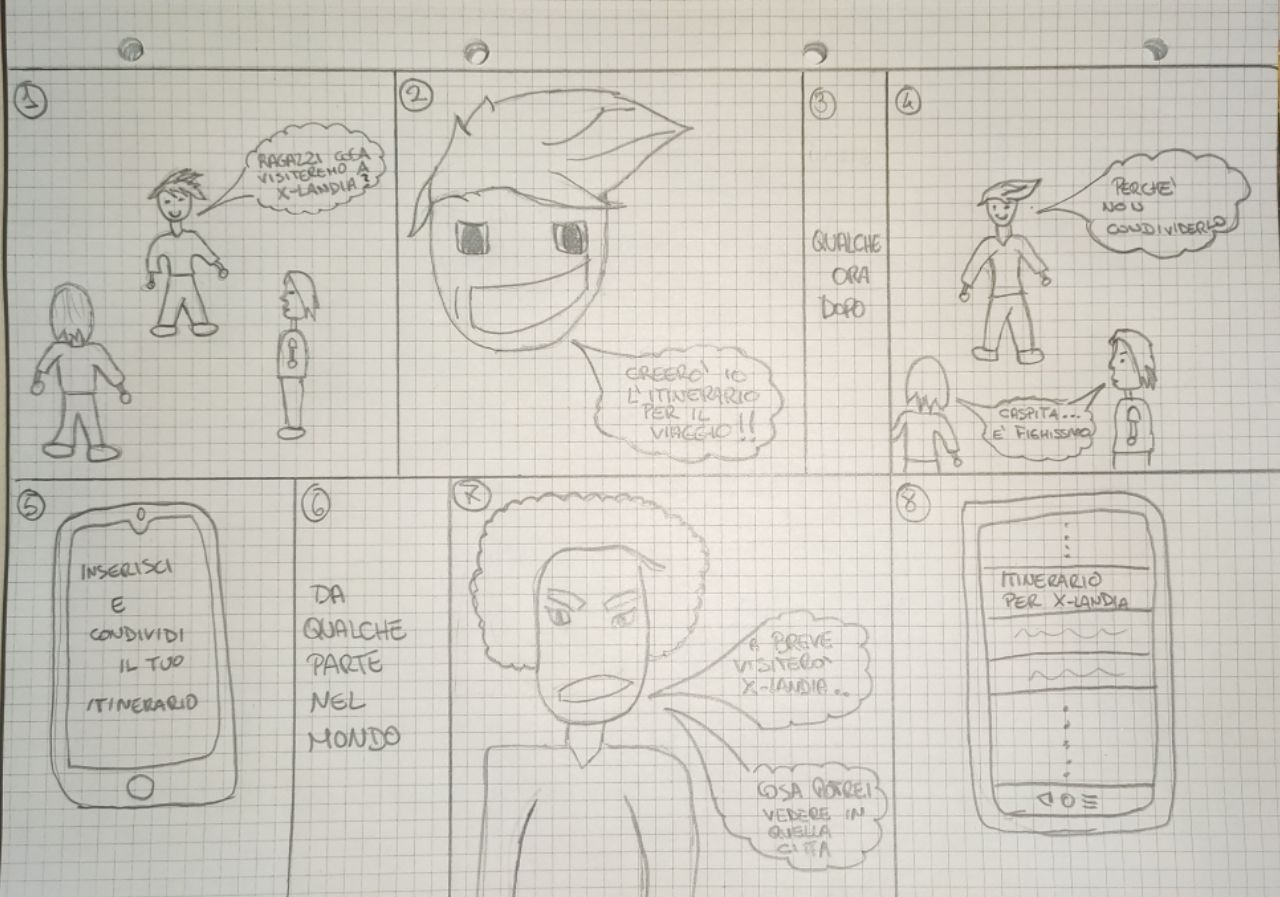 1
RAGAZZI COSA
VISITEREMO A
X-LANDIA?
2
CREERO' IO
L'ITINERARIO
PER IL
VIAGGIO!!
3
QUALCHE
ORA
DOPO
4
PERCHE'
NON
CONDIVIDERLO
CASPITA...
E' FIGHISSIMO
5
INSERISCI
E
CONDIVIDI
IL TUO
ITINERARIO
6
DA
QUALCHE
PARTE
NEL
MONDO
7
A BREVE
VISITERO'
X-LANDIA...
COSA POTREI
VEDERE IN
QUELLA
CITTA
8
ITINERARIO
PER X-LANDIA